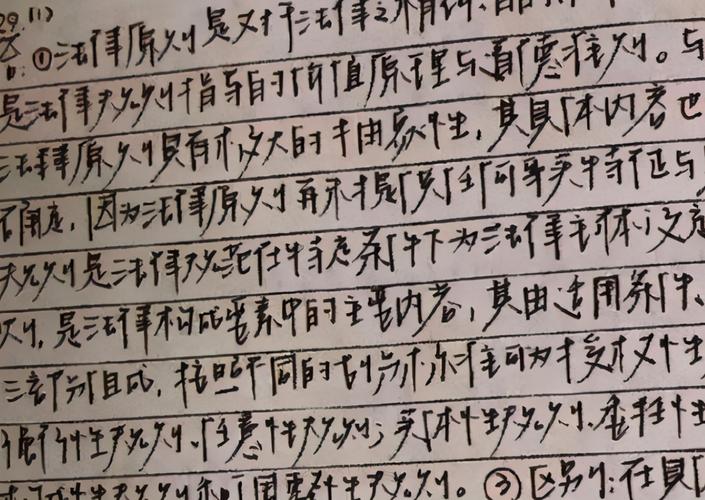 29.(1)
①法律原则是对于法律之
是法律规则指导的价值原理与道德准则。与
法律原则具有极大的抽象性,其具体内容也
不确定,因为法律原则并未提供任何事实特征与
规则是法律规范在特定条件下为法律主体设定
则,是法律构成要素中的主要内容,其由适用条件、
三部分组成,按照不同的划分标准可为授权性
规则、任意性规则;实体性规则、
性规则。③区别:在具